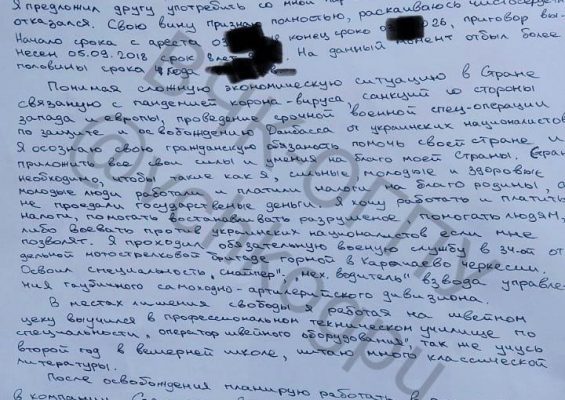 Я предложил другу употребить со мной
отказался. Свою вину признаю полностью, раскаиваюсь
Начало срока с ареста 03 конец срока 0 026, приговор вы-
несен 05.09.2018 срок 8 лет На данный момент отбыл более
половины срока 4 года
Понимая сложную экономическую ситуацию в Стране
связанную с пандемией корона-вируса, санкций со стороны
запада европы, проведение срочной военной спец-операции
по защите и освобождению Данбасса от украинских националистов
Я осознаю свою гражданскую обязаность помочь своей стране и
приложить все свои силы и умения на благо моей Страны.
необходимо, чтобы такие как я, сильные молодые и здоровые
молодые люди работали и платили налоги на благо родины, а
не проедали государственые деньги. Я хочу работать и платить
налоги, помогать востанавливать разрушеное, помогать людям,
либо воевать против украинских националистов если мне
позволят. Я проходил обязательную военую службу в 34-ой от
дельной мотострелковой бригаде горной в Карачаево Черкессии.
Освоил специальность "снайпер", "мех. водитель" взвода управле-
ния гаубичного самоходно-артилерийского дивизиона.
В местах лишения свободы работая на швейном
цеху выучился в профессиональном техническом училище по
специальности "оператор швейного оборудования", так же учусь
второй год в вечерней школе, читаю много классической
литературы.
После освобождения планирую работать в
в компании
ВЧК-ОГПУ
@vchkogpu